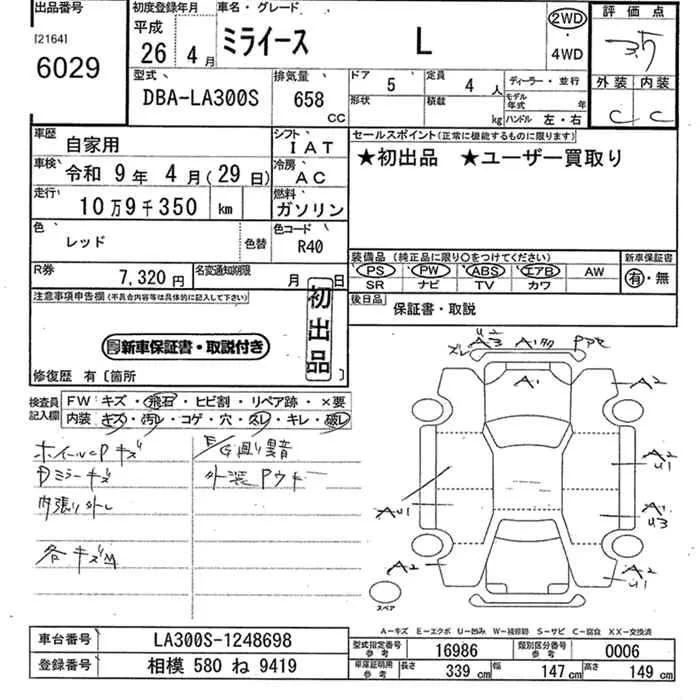 出品番号 初度登録年月 車名・グレード 評価点
[2164] 6029
平成 26年 4月 ミライース L 2WD・4WD 3.5
外装 内装
C C
型式 DBA-LA300S 排気量 658 CC
ドア 5 定員 4人 ディーラー・並行
形状 積載 kg モデル年式 年 ハンドル 左・右
車歴 自家用 シフト IAT
セールスポイント(正常に機能するものに限ります)
★初出品 ★ユーザー買取り
車検 令和 9年 4月(29日) 冷房 AC
走行 10万9千350 km 燃料 ガソリン
色 レッド 色替 色コード R40
装備品(純正品に限り○をつけてください) 新車保証書
PS PW ABS エアB AW 有・無
SR ナビ TV カワ
R券 7,320円 名変通知期限 月 日
後日品 保証書・取説
注意事項申告欄(不具合内容等は具体的に記入して下さい)
初出品
新車保証書・取説付き
修復歴 有〔箇所 〕
検査員記入欄 FW キズ・飛石・ヒビ割・リペア跡・×要
内装 キズ・汚レ・コゲ・穴・スレ・キレ・破レ
ホイールCPキズ
Dミラーキズ
内張り外し
各キズ凹
E/G廻り異音
外装Pウキ
ズレ U2 A3 A1 タタ Pアセ
A1 A2
A2 U1
A1 U3
AU1
A2
A2 U1
スペア
A-キズ E-エクボ U-凹み W-補修跡 S-サビ C-腐食 XX-交換済
車台番号 LA300S-1248698
型式指定番号 参考 16986 類別区分番号 参考 0006
登録番号 相模 580 ね 9419
車庫証明用 参考 長さ 339 cm 幅 147 cm 高さ 149 cm